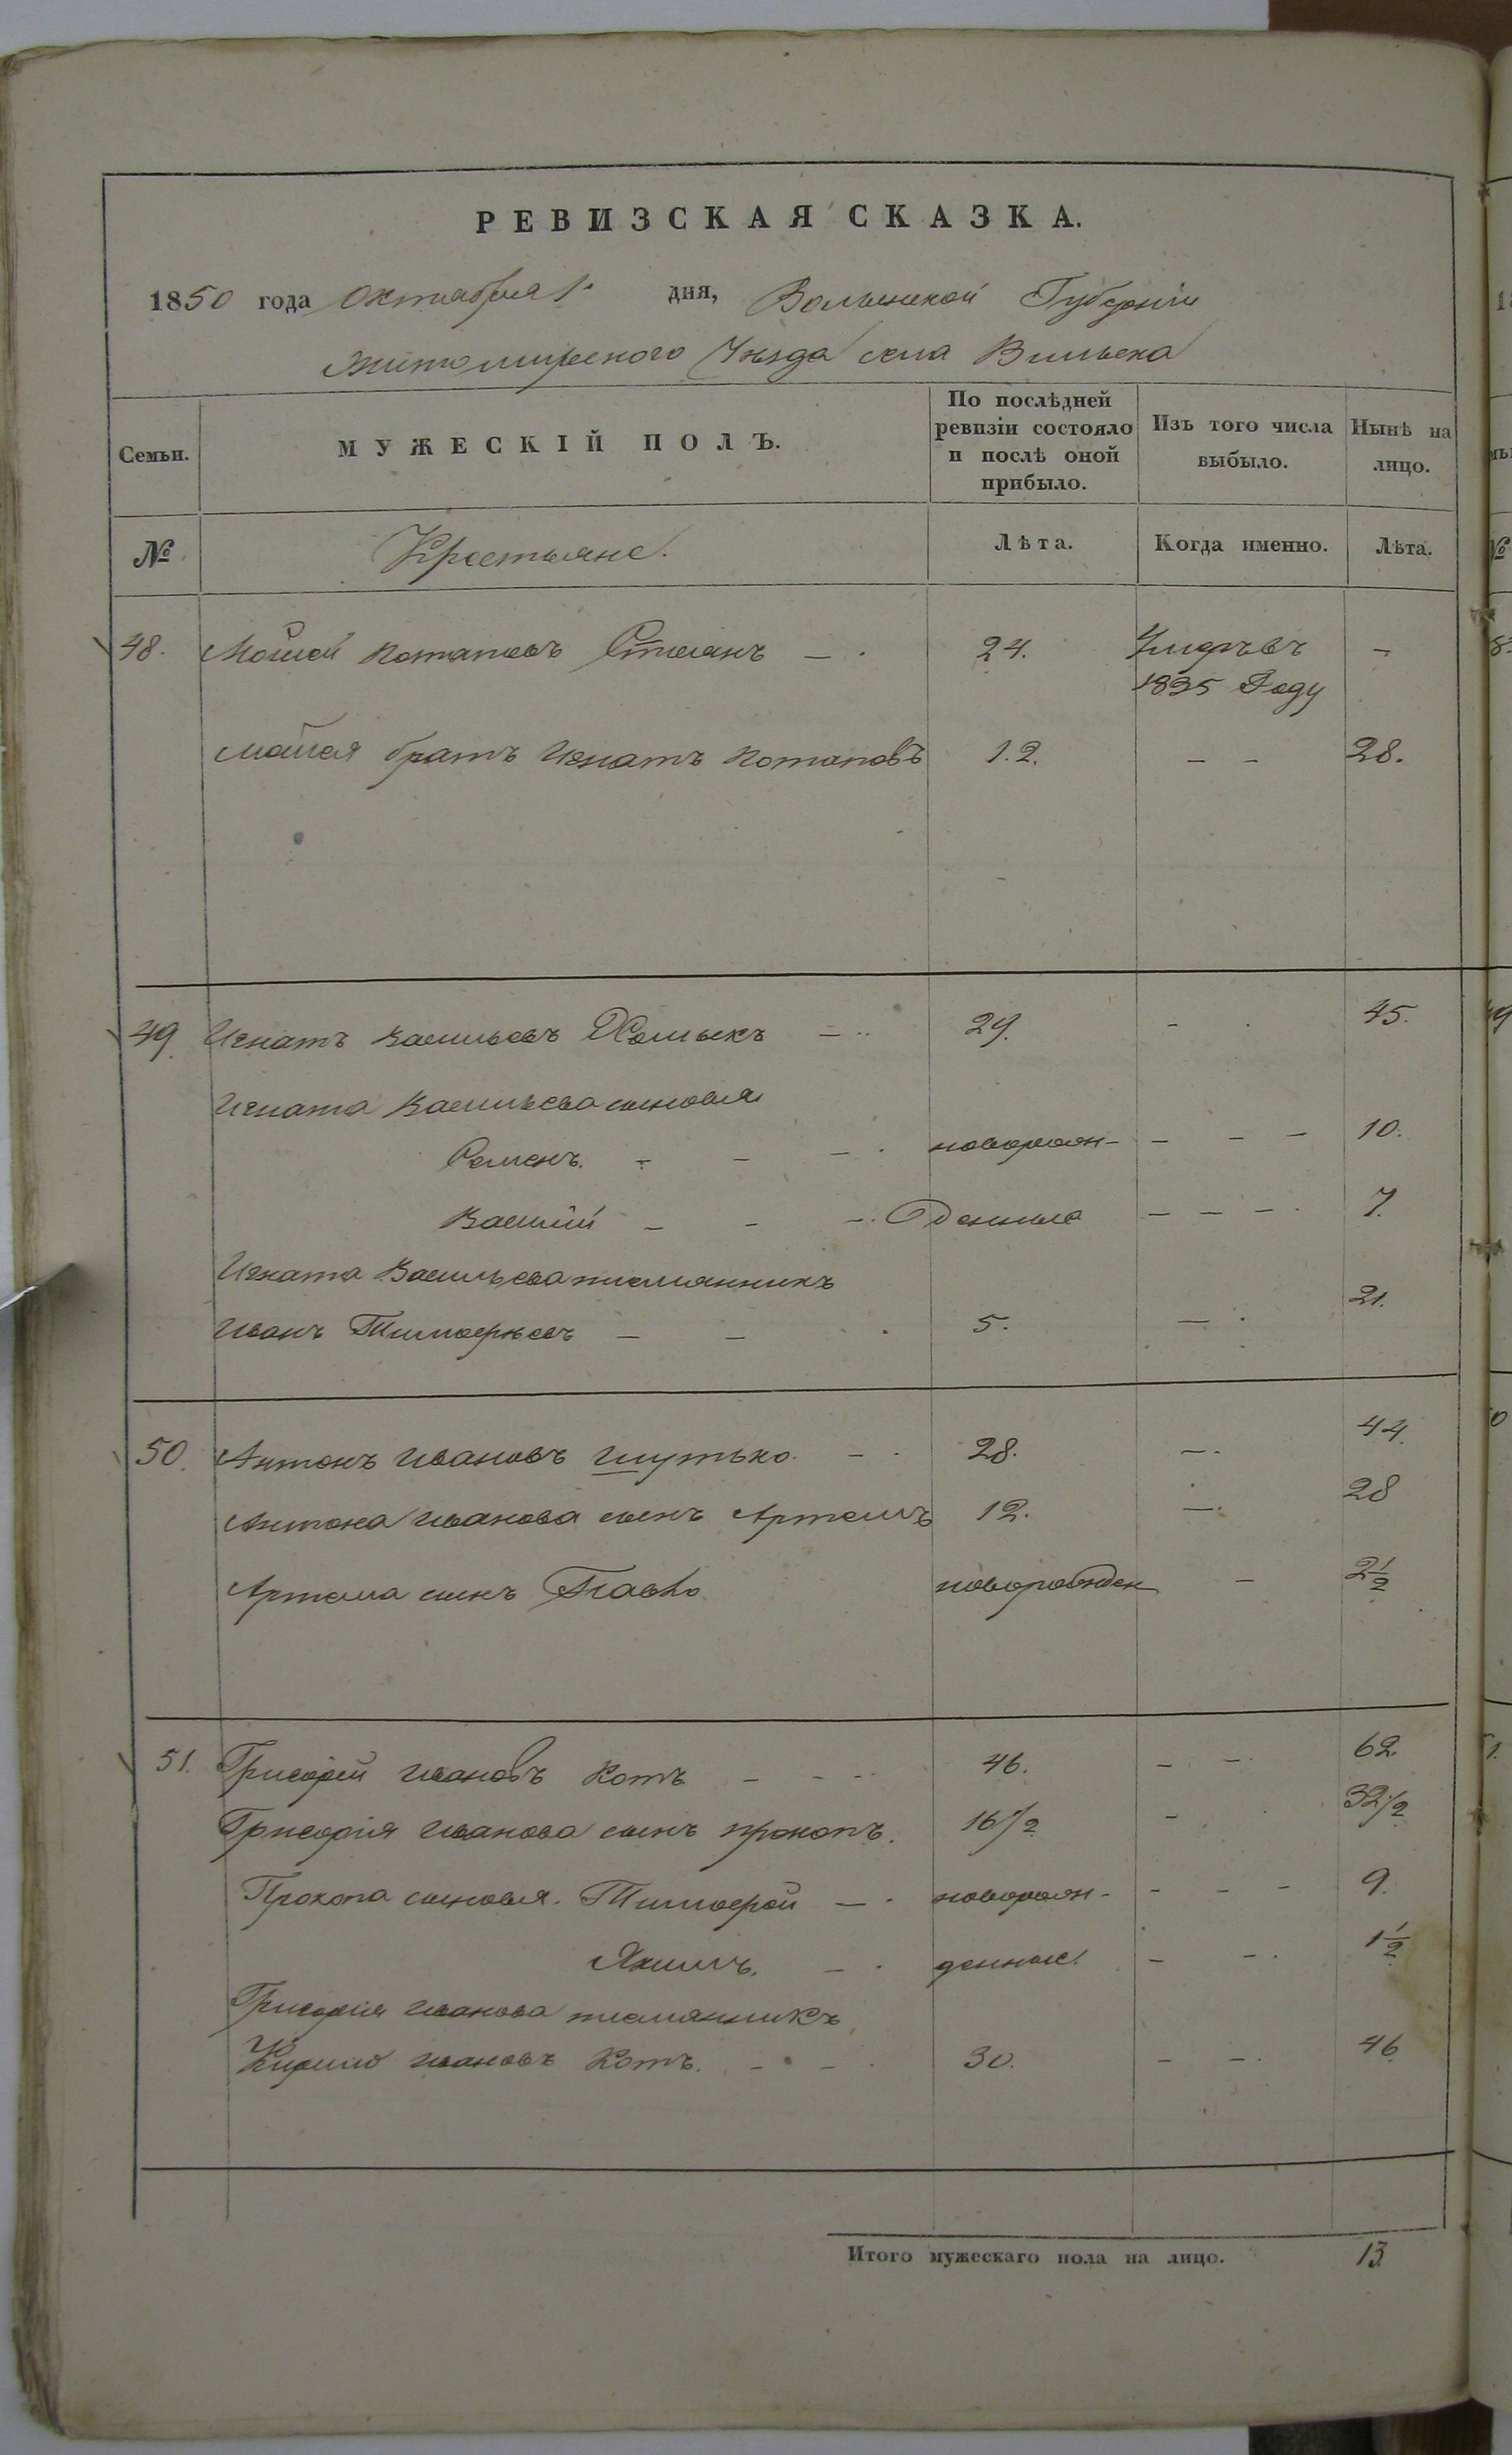 РЕВИЗСКАЯ СКАЗКА.
1850 года Октября 1. дня, Волынской Губерніи
Житомирского Уезда села Вильска
Семьи. МУЖЕСКІЙ ПОЛЪ. По послѣдней ревизіи состояло и послѣ оной прибыло. Изъ того числа выбыло. Нынѣ на лицо.
№ Крестьяне. Лѣта. Когда именно. Лѣта.
48. Мойсей Потаповъ 24. Умеръ въ —
1835 Году
Мойсея братъ Игнатъ Потаповъ 12. — — 28.
49. Игнатъ Васильевъ — 29. — 45.
Игната Васильева сыновья
Семенъ. — — — новорож- — — — 10.
Василій — — — денные — — — 7.
Игната Васильева племянникъ
Иванъ Тимофѣевъ — — 5. — 21.
50. Антонъ Ивановъ Шутько. — 28. — 44.
Антона Иванова сынъ Артемъ 12. — 28
Артема сынъ Павло новорожден — 2 1/2
51. Григорій Ивановъ Котъ — — — 46. — — 62.
Григорія Иванова сынъ Прокопъ. 16 1/2 — 32 1/2
Прокопа сыновья. Тимофей — новорож- — — — 9.
Якимъ. — денные. — — 1 1/2
Григорія Иванова племянникъ
Кирило Ивановъ Котъ. — — 30. — — 46
Итого мужескаго пола на лицо. 13